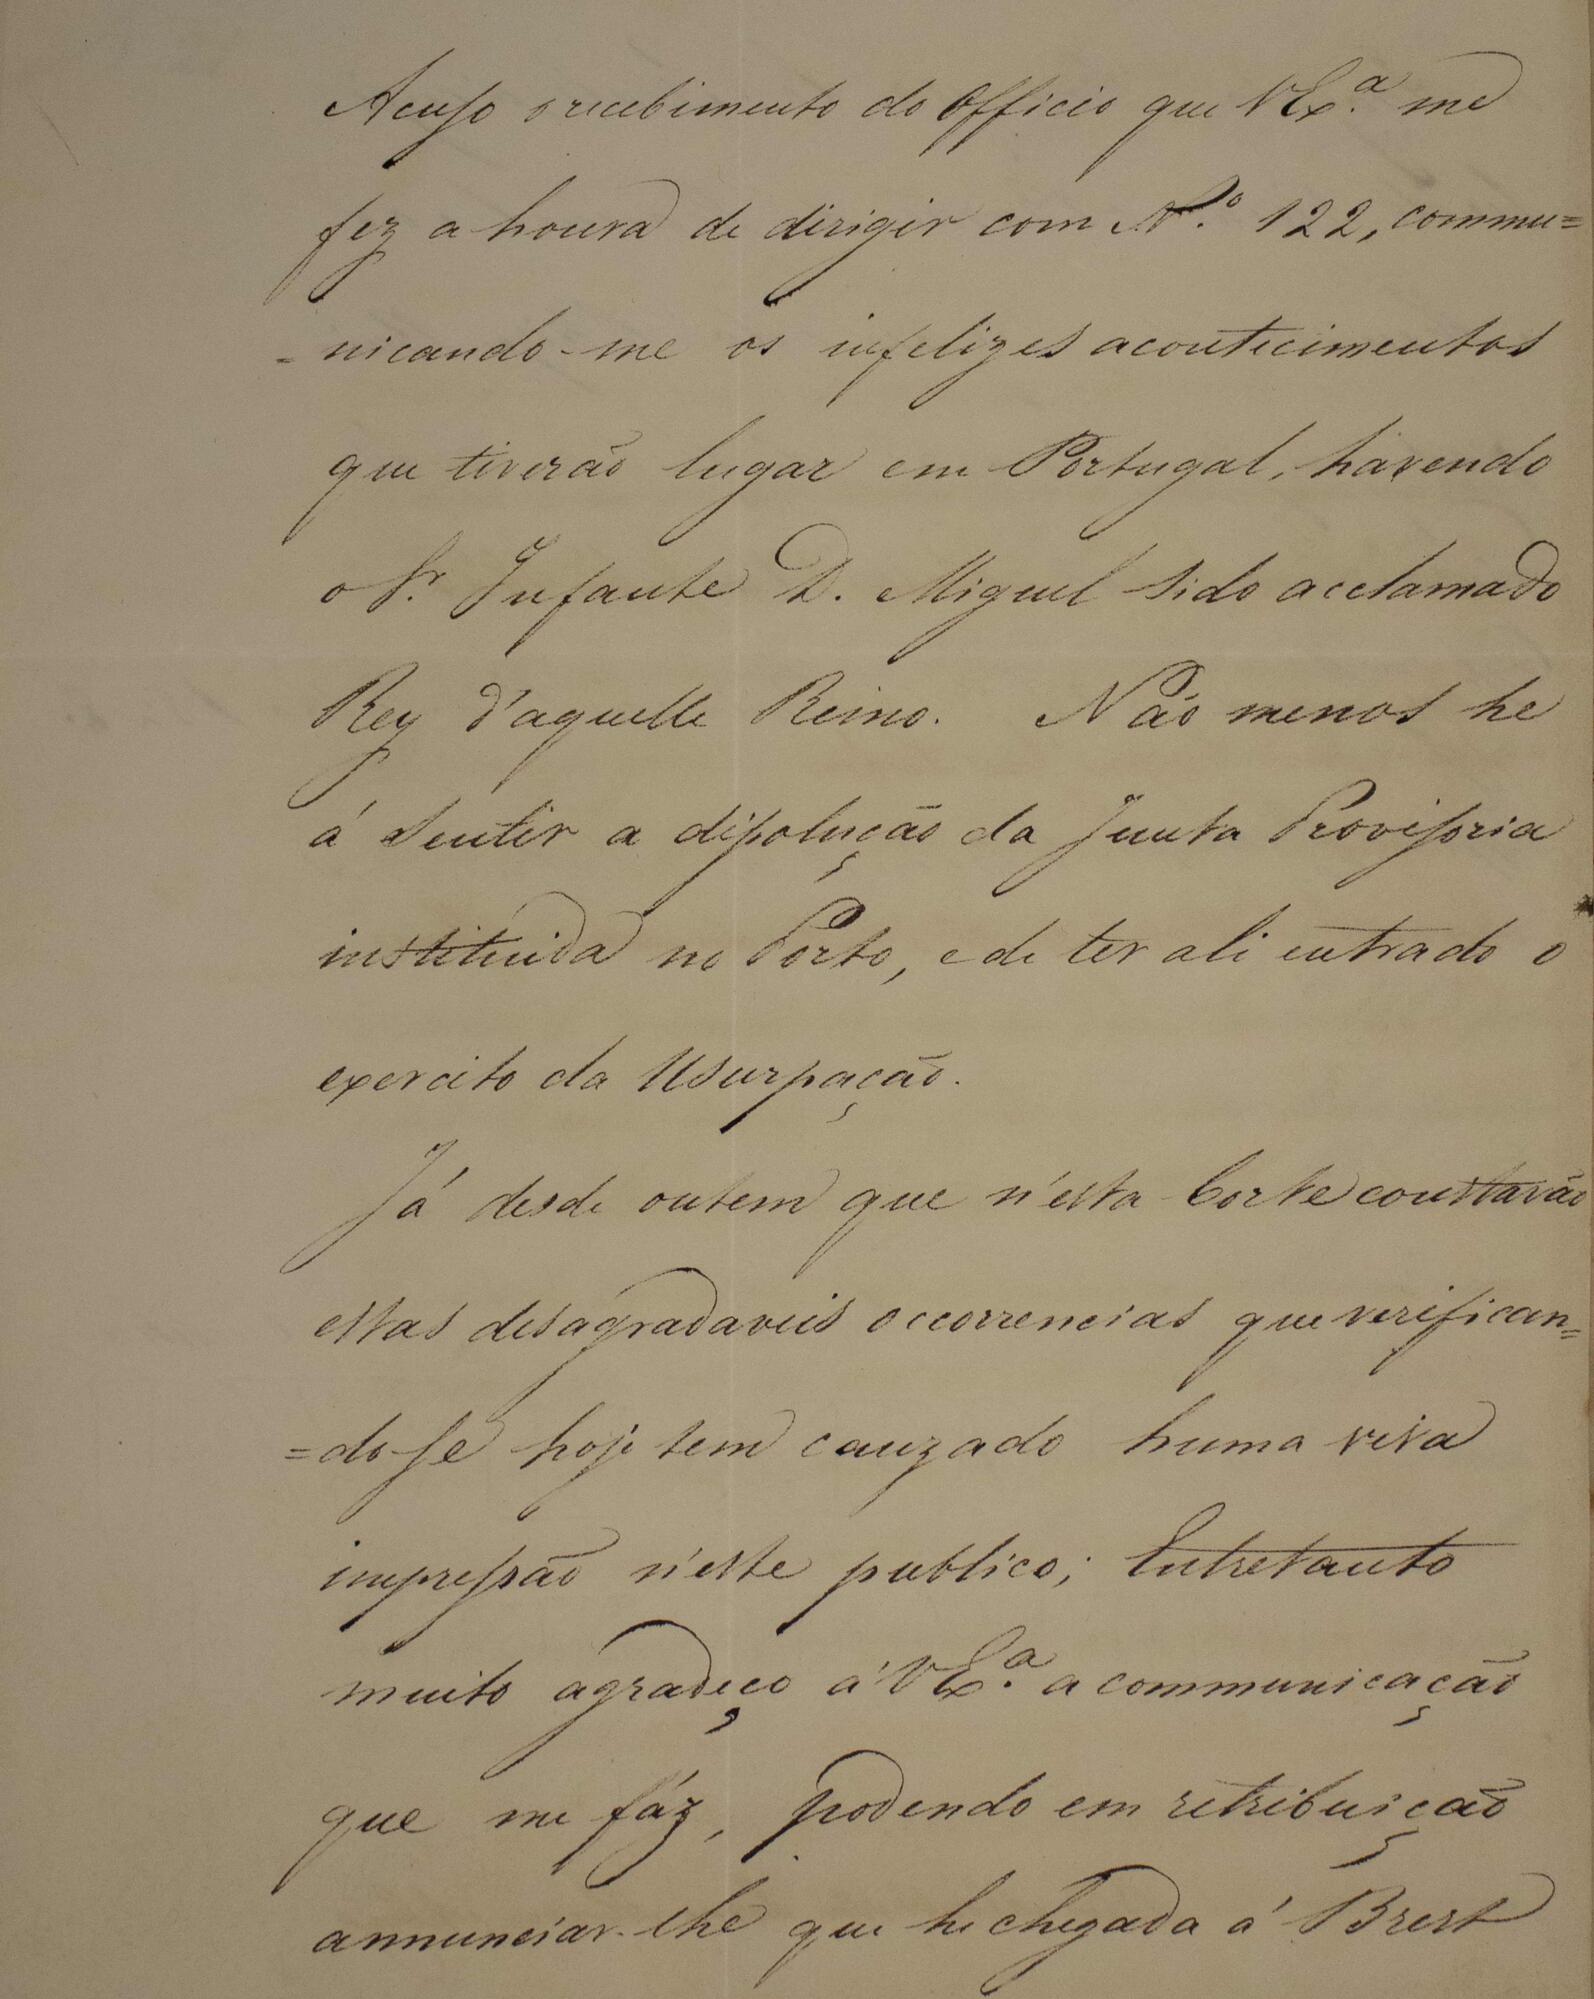 Acuso o recebimento do Officio que VEx.ª me
fez a honra de dirigir com N.º 122, commu=
=nicando-me os infelizes acontecimentos
que tiverão lugar em Portugal, havendo
o Sr. Infante D. Miguel sido acclamado
Rey d'aquelle Reino. Não menos he
á sentir a dissolução da Junta Provisoria
instituida no Porto, e de ter ali entrado o
exercito da Usurpação.
Já desde ontem que n'esta Corte constavão
estas desagradaveis occorrencias que verifican=
=do-se hoje tem cauzado huma viva
impressão n'este publico; Entretanto
muito agradeço á VEx.ª a communicação
que me fáz, podendo em retribuição
annunciar-lhe que he chegada á Brest